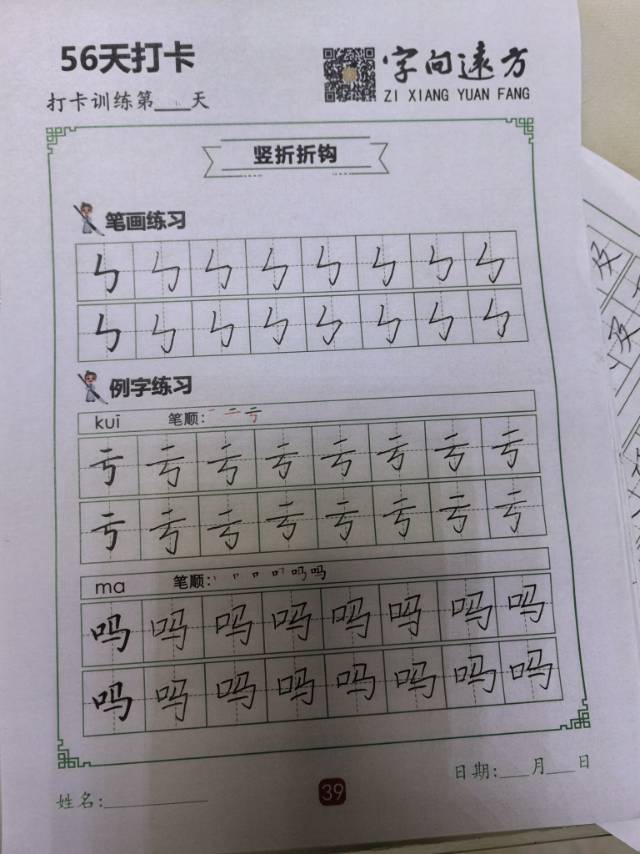 56天打卡
字向遠方
打卡训练第___天
ZI XIANG YUAN FANG
竖折折钩
笔画练习
㇉ ㇉ ㇉ ㇉ ㇉ ㇉ ㇉ ㇉
㇉ ㇉ ㇉ ㇉ ㇉ ㇉ ㇉ ㇉
例字练习
kuī 笔顺: 一 二 亏
亏 亏 亏 亏 亏 亏 亏 亏
亏 亏 亏 亏 亏 亏 亏 亏
ma 笔顺:
吗 吗 吗 吗 吗 吗 吗 吗
吗 吗 吗 吗 吗 吗 吗 吗
日期:___月___日
姓名:________
39